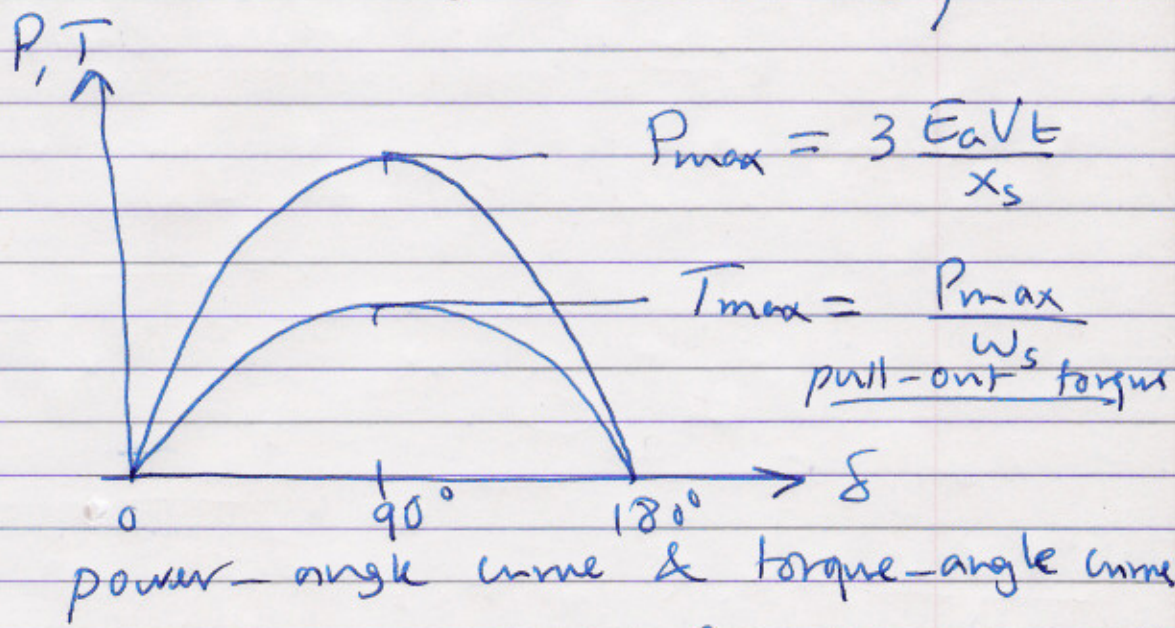 P, T
Pmax = 3 EaVt / xs
Tmax = Pmax / ωs
pull-out torque
0 90° 180° δ
power-angle curve & torque-angle curve